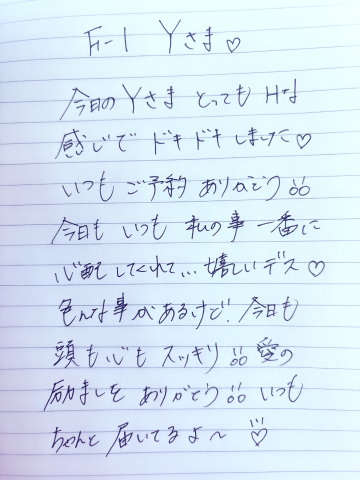 F-1 Yさま♡
今日のYさま とっても Hな
感じで ドキドキしました♡
いつも ご予約 ありがとう
今日も いつも 私の事 一番に
心配してくれて… 嬉しいデス♡
色んな事があるけど! 今日も
頭も心も スッキリ 愛の
励ましを ありがとう いつも
ちゃんと 届いてるよ〜 ♡